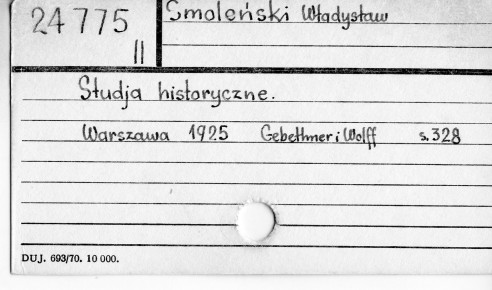 24775
II
Smoleński Władysław
Studja historyczne.
Warszawa 1925 Gebethner i Wolff s. 328
DUJ. 693/70. 10 000.